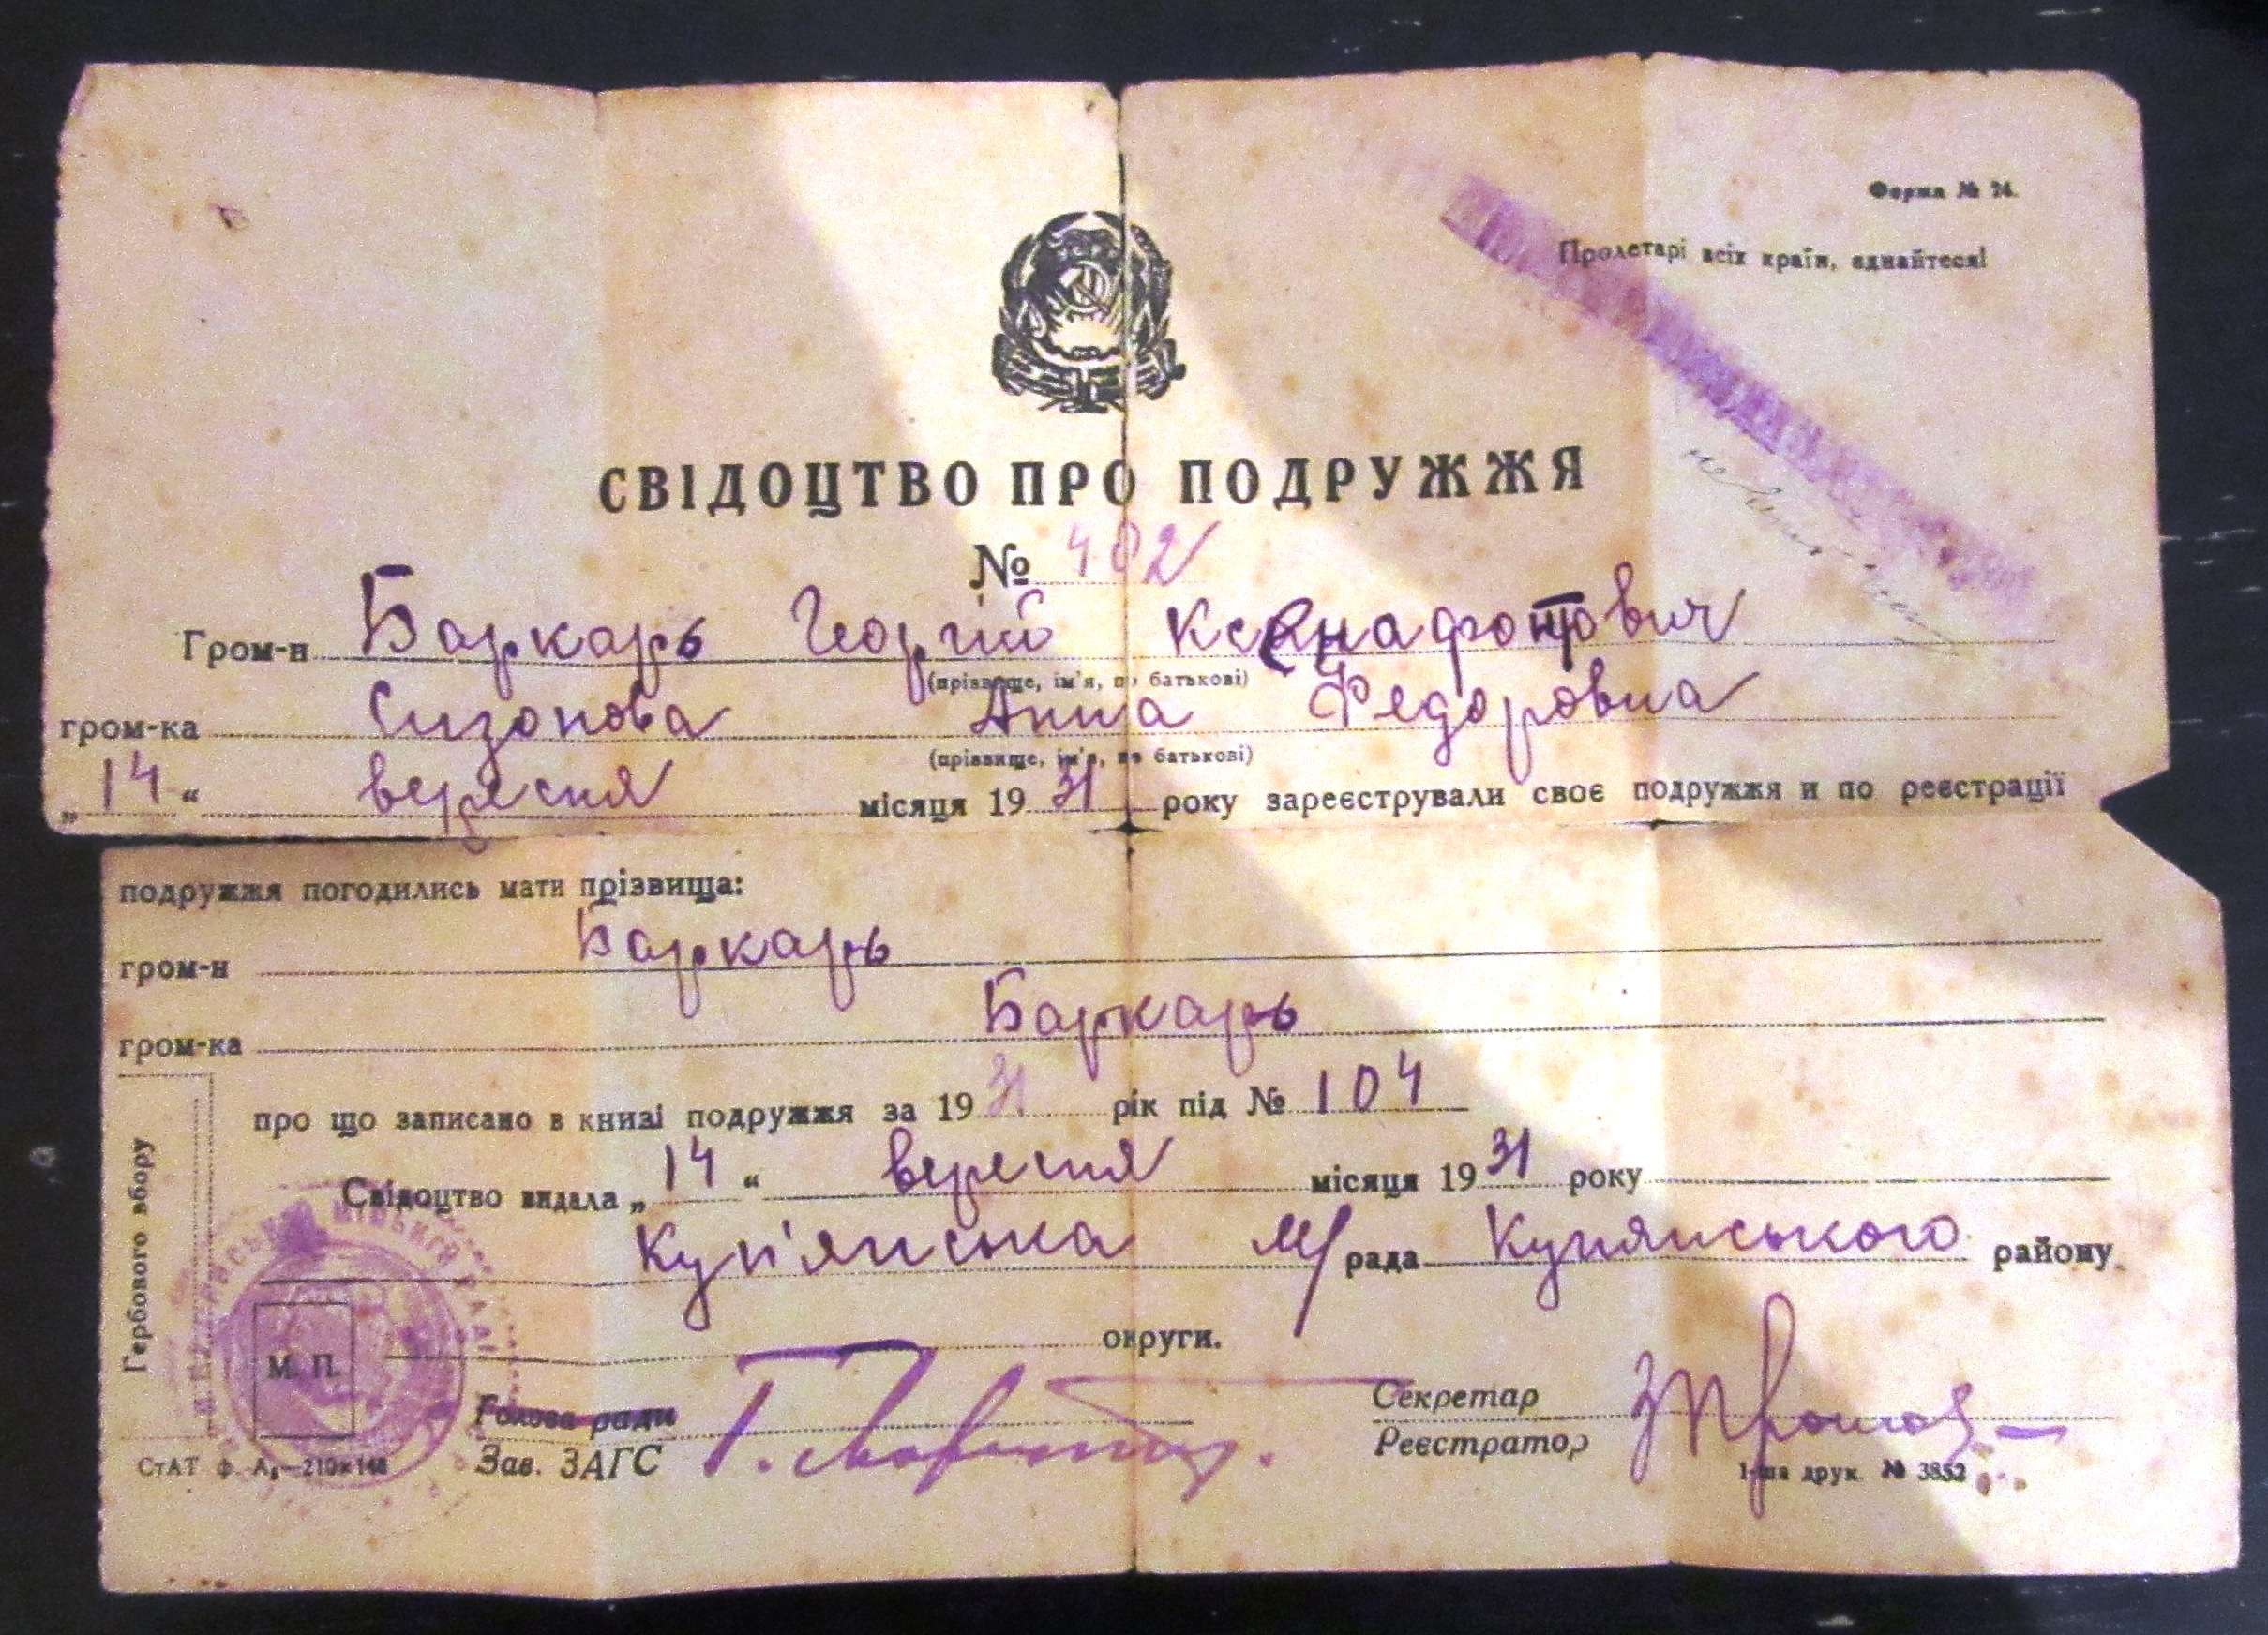 Форма № 24.
Пролетарі всіх країн, єднайтеся!
СВІДОЦТВО ПРО ПОДРУЖЖЯ
№ 402
Гром-н Баркарь Георгій Ксенафонтович
(прізвище, ім'я, по батькові)
гром-ка Сизонова Анна Федоровна
(прізвище, ім'я, по батькові)
„14“ вересня місяця 1931 року зареєстрували своє подружжя и по реєстрації
подружжя погодились мати прізвища:
гром-н Баркарь
гром-ка Баркарь
про що записано в книзі подружжя за 1931 рік під № 104
Свідоцтво видала „14“ вересня місяця 1931 року
Куп'янська м/рада Купянського району
округи.
Гербового збору
М. П.
Голова ради
Зав. ЗАГС
Секретар
Реєстратор
СтАТ ф. А₅—210×148
1-ша друк. № 3852